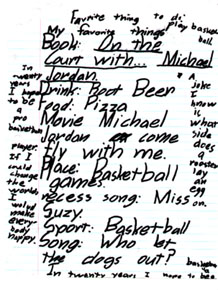 Favorite thing to do:
play basket
ball
My favorite things
Book: On the
Court with... Michael
Jordan
Drink: Root Beer
Food: Pizza
Movie Michael
Jordan come
fly with me.
Place: Basketball
games.
recess song: Miss
Suzy.
Sport: Basketball
Song: Who let
the dogs out?
In twenty years I hope to be a
In
twenty
years
I hope
to be
a
pro
basketball
player.
If I
could
change
the
world,
I
would
make
every
body
happy.
A
joke
I
know
is
what
side
does
a
rooster
lay
an
egg
on.
basketball